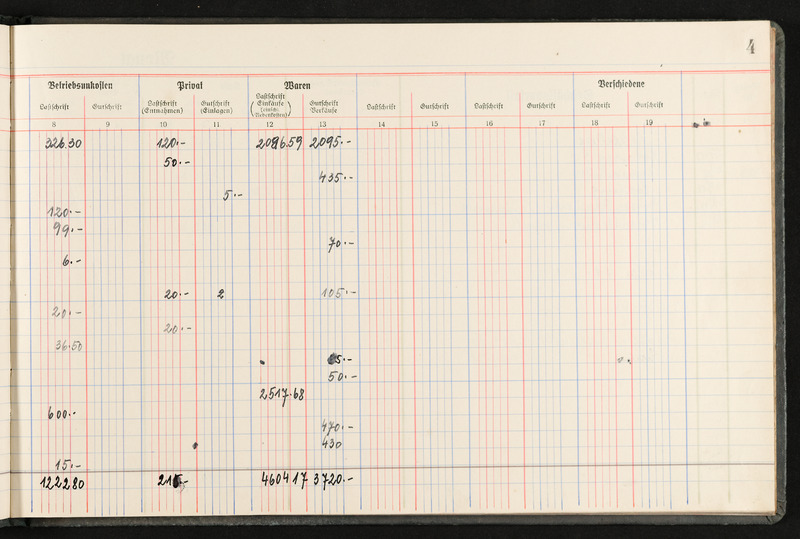 4
Betriebsunkosten Privat Waren Verschiedene
Lastschrift Gutschrift Lastschrift (Entnahmen) Gutschrift (Einlagen) Lastschrift (Einkäufe (einschl. Nebenkosten)) Gutschrift Verkäufe Lastschrift Gutschrift Lastschrift Gutschrift Lastschrift Gutschrift
8 9 10 11 12 13 14 15 16 17 18 19
326.30 120.- 2096.59 2095.-
50.-
435.-
5.-
120.-
99.-
70.-
6.-
20.- 2 105.-
20.-
20.-
36.50
5.-
50.-
2517.68
600.-
470.-
430
15.-
1222 80 460417 3720.-